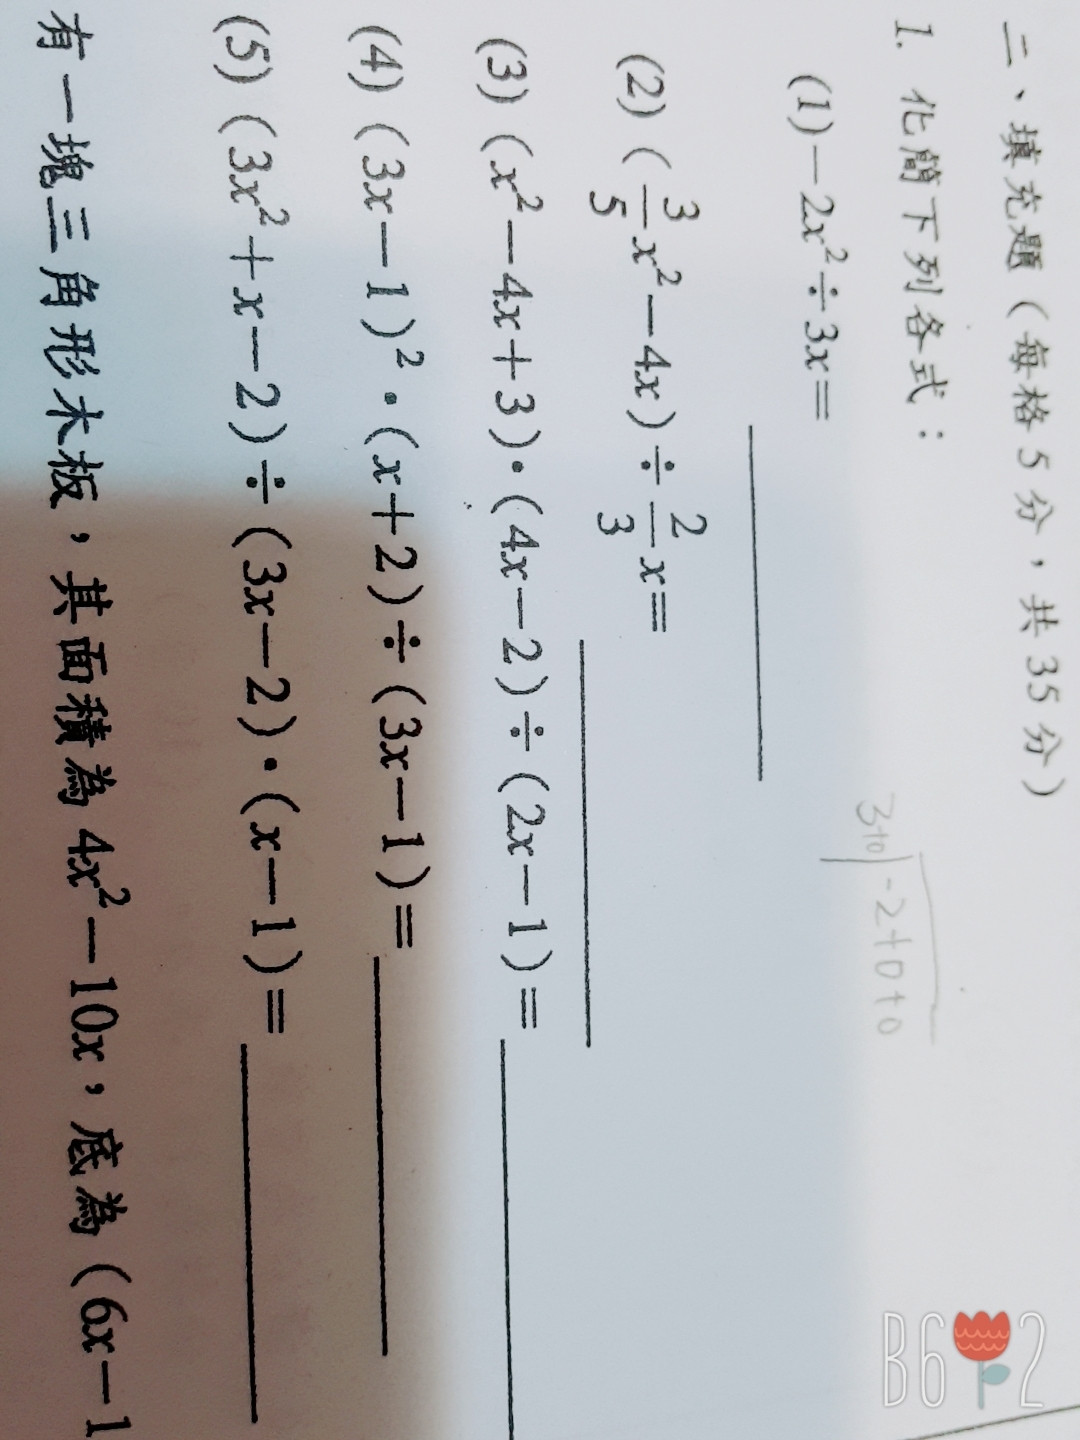 二、填充題（每格5分，共35分）
1. 化簡下列各式：
(1) −2x²÷3x=
3+0 -2+0+0
(2) (3/5x²−4x)÷2/3x=
(3) (x²−4x+3)·(4x−2)÷(2x−1)=
(4) (3x−1)²·(x+2)÷(3x−1)=
(5) (3x²+x−2)÷(3x−2)·(x−1)=
有一塊三角形木板，其面積為4x²−10x，底為(6x−1
B6 2